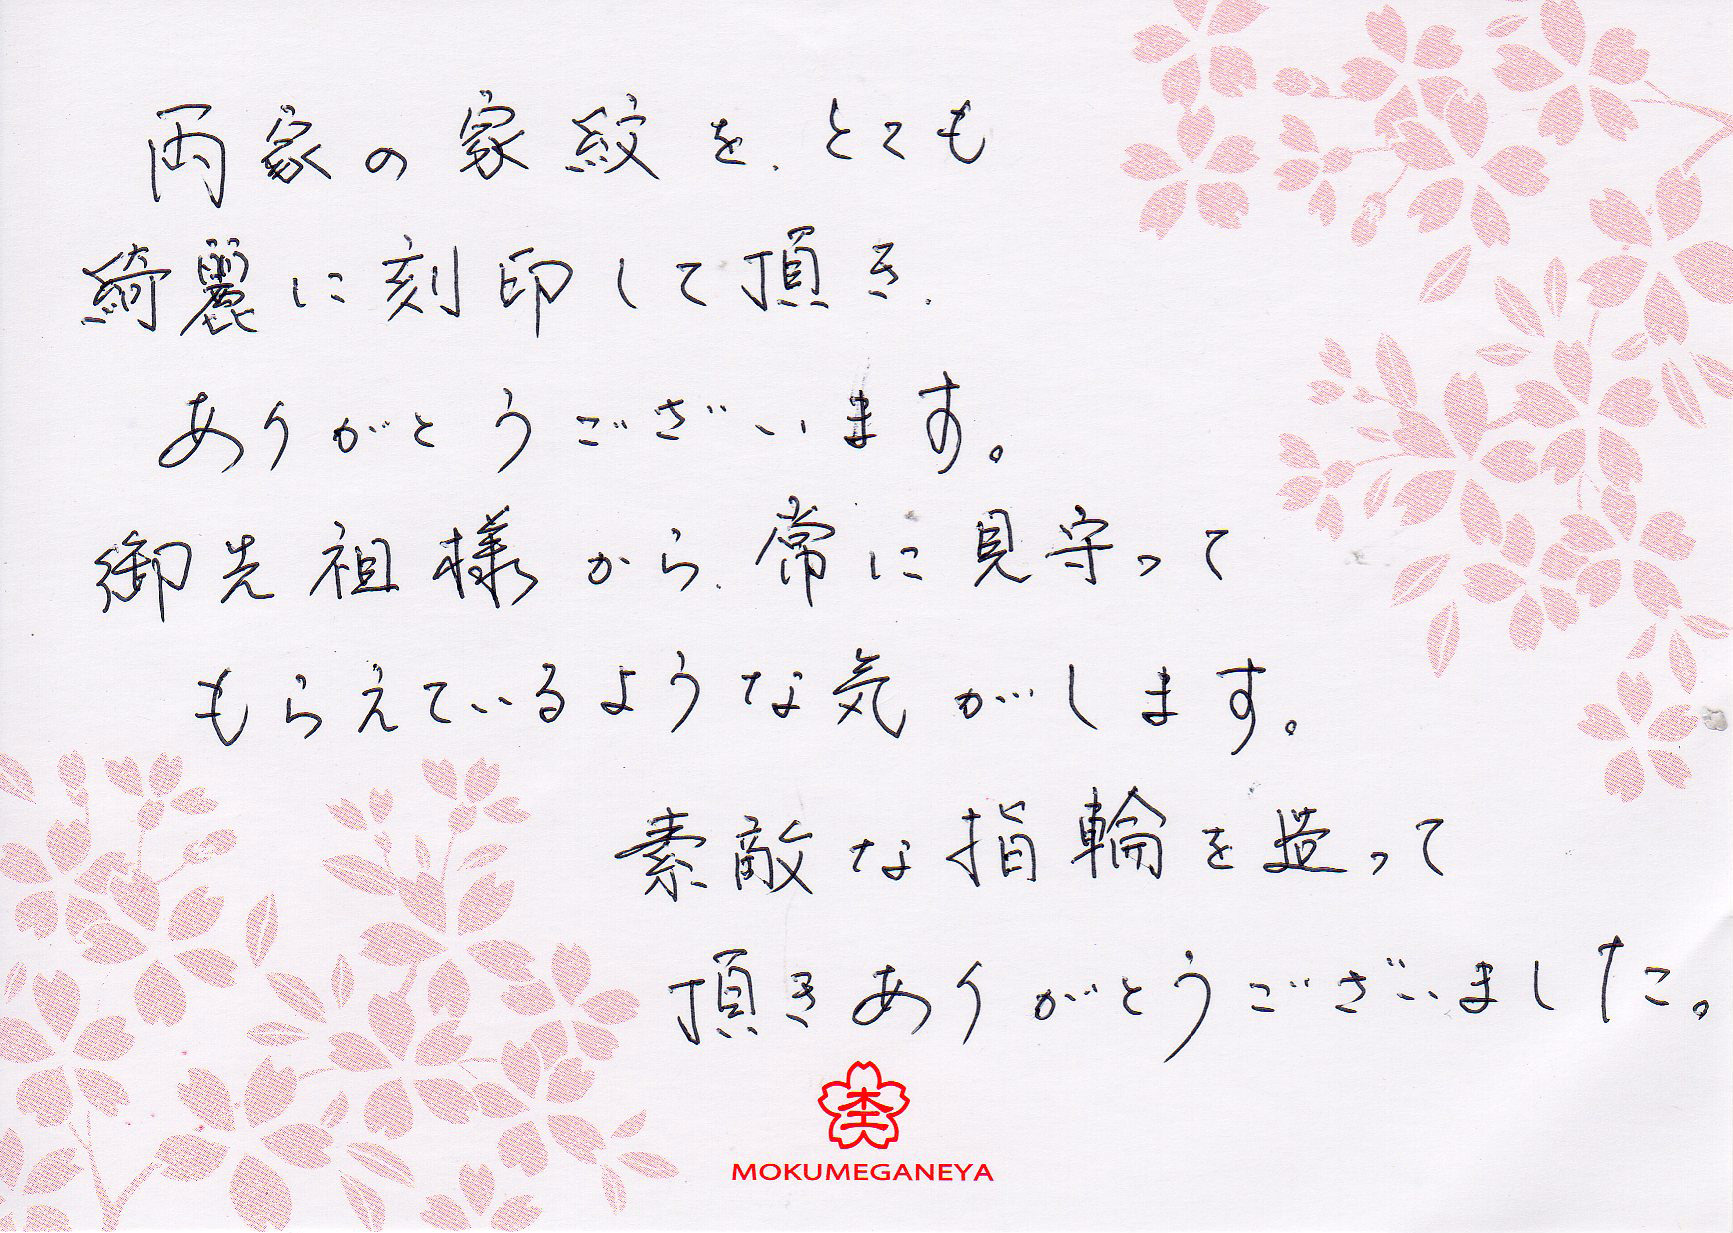 両家の家紋を、とても
綺麗に刻印して頂き、
ありがとうございます。
御先祖様から、常に見守って
もらえているような気がします。
素敵な指輪を造って
頂きありがとうございました。
杢
MOKUMEGANEYA